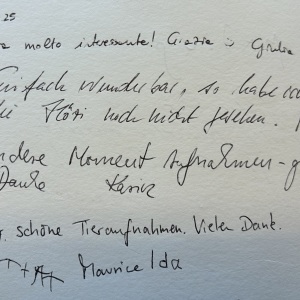 25
molto interessante! Grazie
Einfach wunderbar, so habe ich
die Flöri noch nicht gesehen.
Moment Aufnahmen - g
Danke Karin
schöne Tieraufnahmen. Vielen Dank.
Maurice Ida